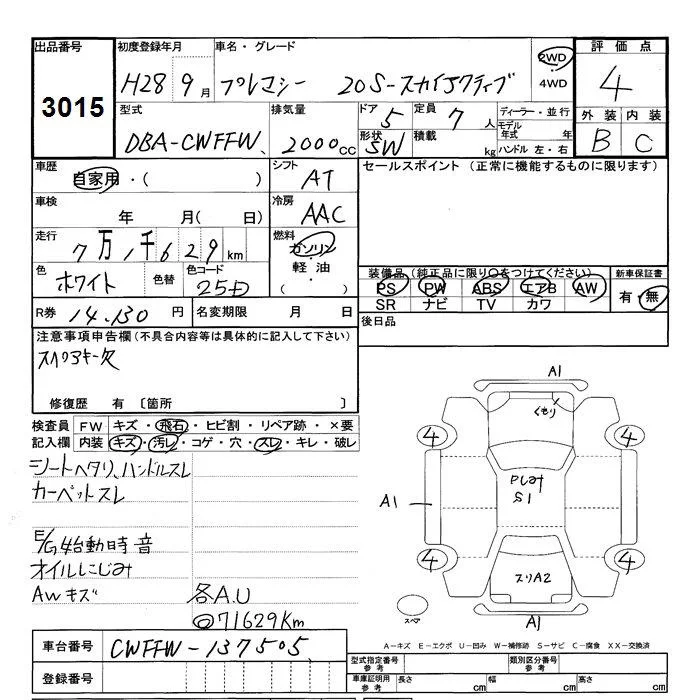 出品番号
3015
初度登録年月
H28 9月
車名・グレード
プレマシー 20S-スカイアクティブ
2WD
・
4WD
評価点
4
外装 内装
B C
型式
DBA-CWFFW
排気量
2000cc
ドア 5
形状 SW
定員 7人
積載 kg
ディーラー・並行
モデル
年式 年
ハンドル 左・右
車歴
自家用・( )
シフト
AT
セールスポイント (正常に機能するものに限ります)
車検
年 月( 日)
冷房
AAC
走行
7万1千629km
燃料
ガソリン
軽油
( )
色
ホワイト
色替
色コード
25D
装備品(純正品に限り○をつけてください)
PS PW ABS エアB AW
SR ナビ TV カワ
新車保証書
有・無
R券 14.130円
名変期限 月 日
後日品
注意事項申告欄(不具合内容等は具体的に記入して下さい)
スペアキー欠
修復歴 有 〔箇所 〕
検査員 FW キズ・飛石・ヒビ割・リペア跡・×要
記入欄 内装 キズ・汚レ・コゲ・穴・スレ・キレ・破レ
シートヘタリ、ハンドルスレ
カーペットスレ
E/G始動時音
オイルにじみ
AWキズ
各A.U
◎71629Km
A1
くもり
4 4
A1
S1
スリA2
4 4
A1
スペア
A-キズ E-エクボ U-凹み W-補修跡 S-サビ C-腐食 XX-交換済
車台番号 CWFFW-137505
登録番号
型式指定番号
参考
類別区分番号
参考
車庫証明用
参考
長さ cm 幅 cm 高さ cm